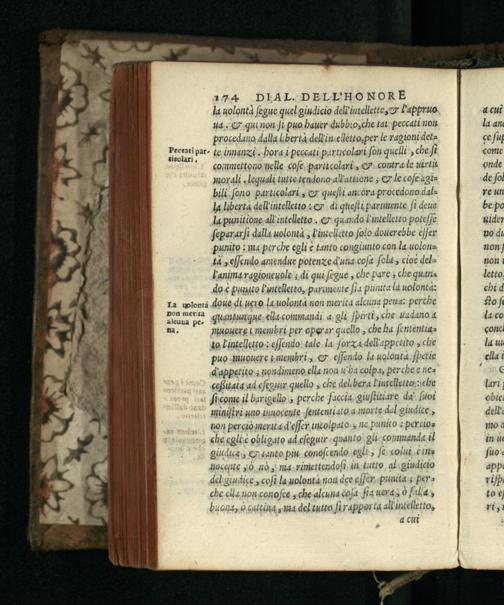 174 DIAL. DELL'HONORE
la volontà segue quel giudicio dell'intelletto, & l'appruo
ua. & qui non si puo hauer dubbio, che tai peccati non
procedano dalla libertà dell'intelletto, per le ragioni det-
te innanzi. hora i peccati particolari son quelli, che si
Peccati par-
ticolari.
commettono nelle cose particolari, & contra le uirtù
morali, lequali tutte tendono all'attione; & le cose agi-
bili sono particolari, & questi ancora procedono dal-
la libertà dell'intelletto: & di questi parimente si deue
la punitione all'intelletto. & quando l'intelletto potesse
separarsi dalla uolontà, l'intelletto solo douerebbe esser
punito: ma perche egli è tanto congiunto con la uolon-
tà, essendo amendue potenze d'una cosa sola, cioè del-
l'anima ragioneuole; di qui segue, che pare, che quan-
do è punito l'intelletto, parimente sia punita la uolontà:
doue di uero la uolontà non merita alcuna pena: perche
La uolontà
non merita
alcuna pe-
na.
quantunque ella commandi a gli spirti, che uadano a
muouere i membri per operar quello, che ha sententia-
to l'intelletto: essendo tale la forza dell'appetito, che
può muouere i membri, & essendo la uolontà spetie
d'appetito; nondimeno ella non n'ha colpa, perche è ne-
cessitata ad eseguir quello, che delibera l'intelletto: che
si come il barigello, perche faccia giustitiare da' suoi
ministri uno innocente sententiato a morte dal giudice,
non perciò merita d'esser incolpato, ne punito: percio-
che egli è obligato ad eseguir quanto gli commanda il
giudice, & tanto piu conoscendo egli, se colui è in-
nocente, ò nò, ma rimettendosi in tutto al giudicio
del giudice, così la uolontà non dee esser punita; per-
che ella non conosce, che alcuna cosa sia uera, ò falsa,
buona, ò cattiua, ma del tutto si rapporta all'intelletto,
a cui